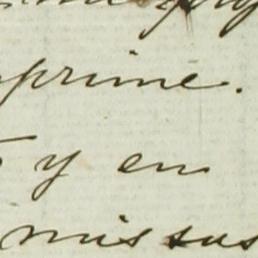 prime.
y en
mis sus